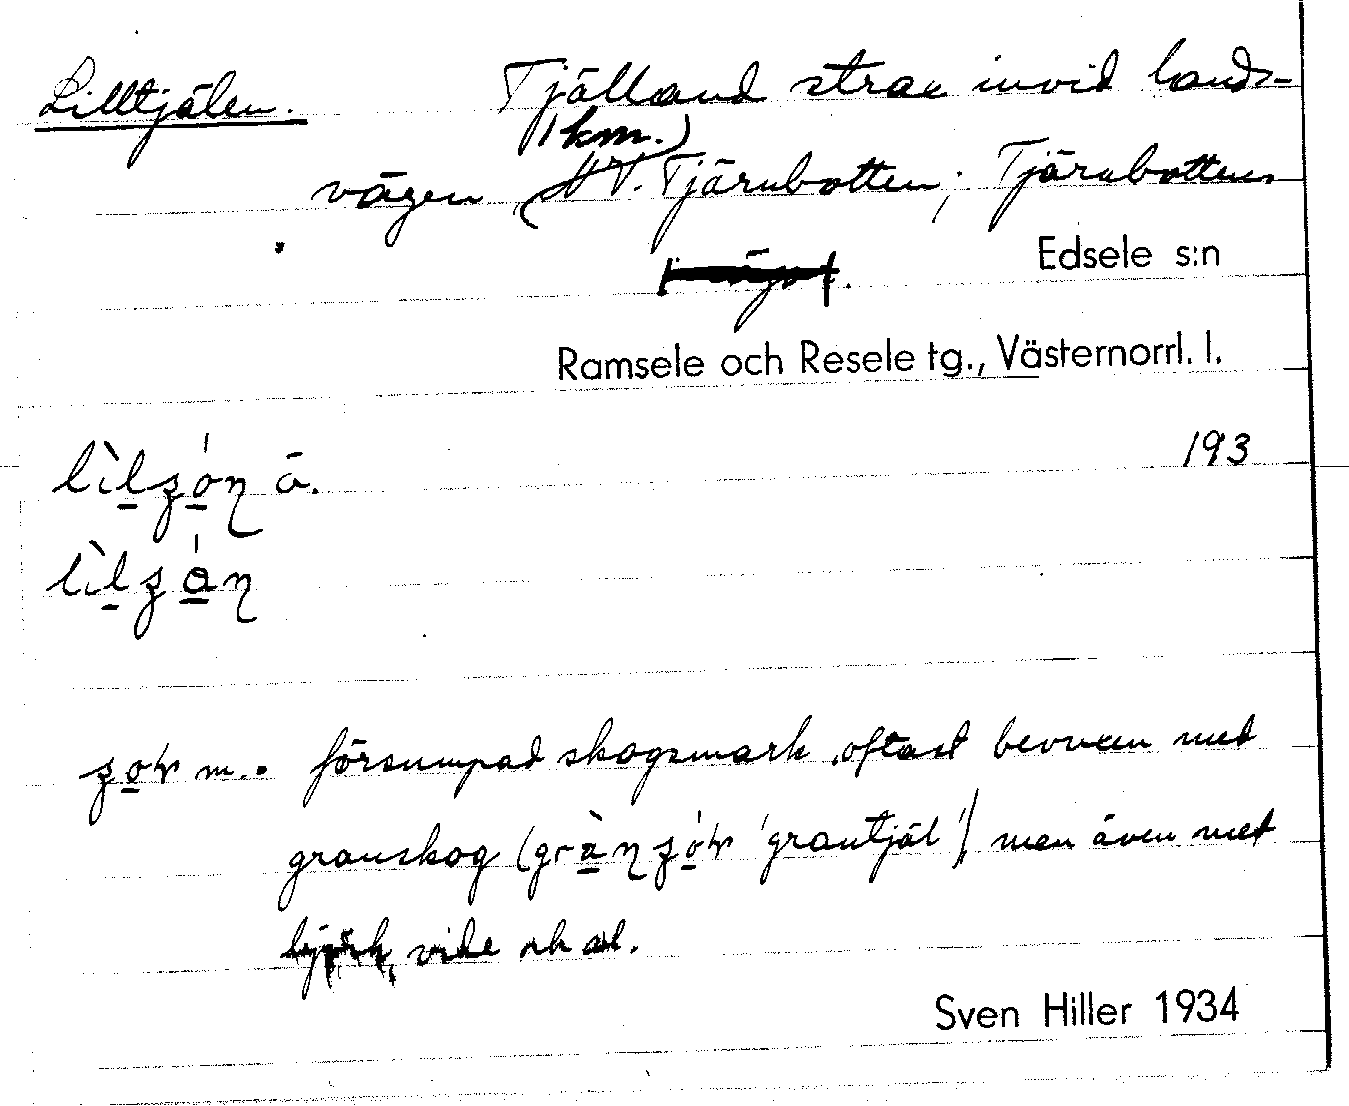 Lilltjälen. Tjälland strax invid lands-
1 km.)
vägen (V. Tjärnbotten; Tjärnbottens
Edsele s:n
Ramsele och Resele tg., Västernorrl. l.
193
försumpad skogsmark, oftast bevuxen med
granskog 'grantjäl') men även med
björk, vide och al.
Sven Hiller 1934